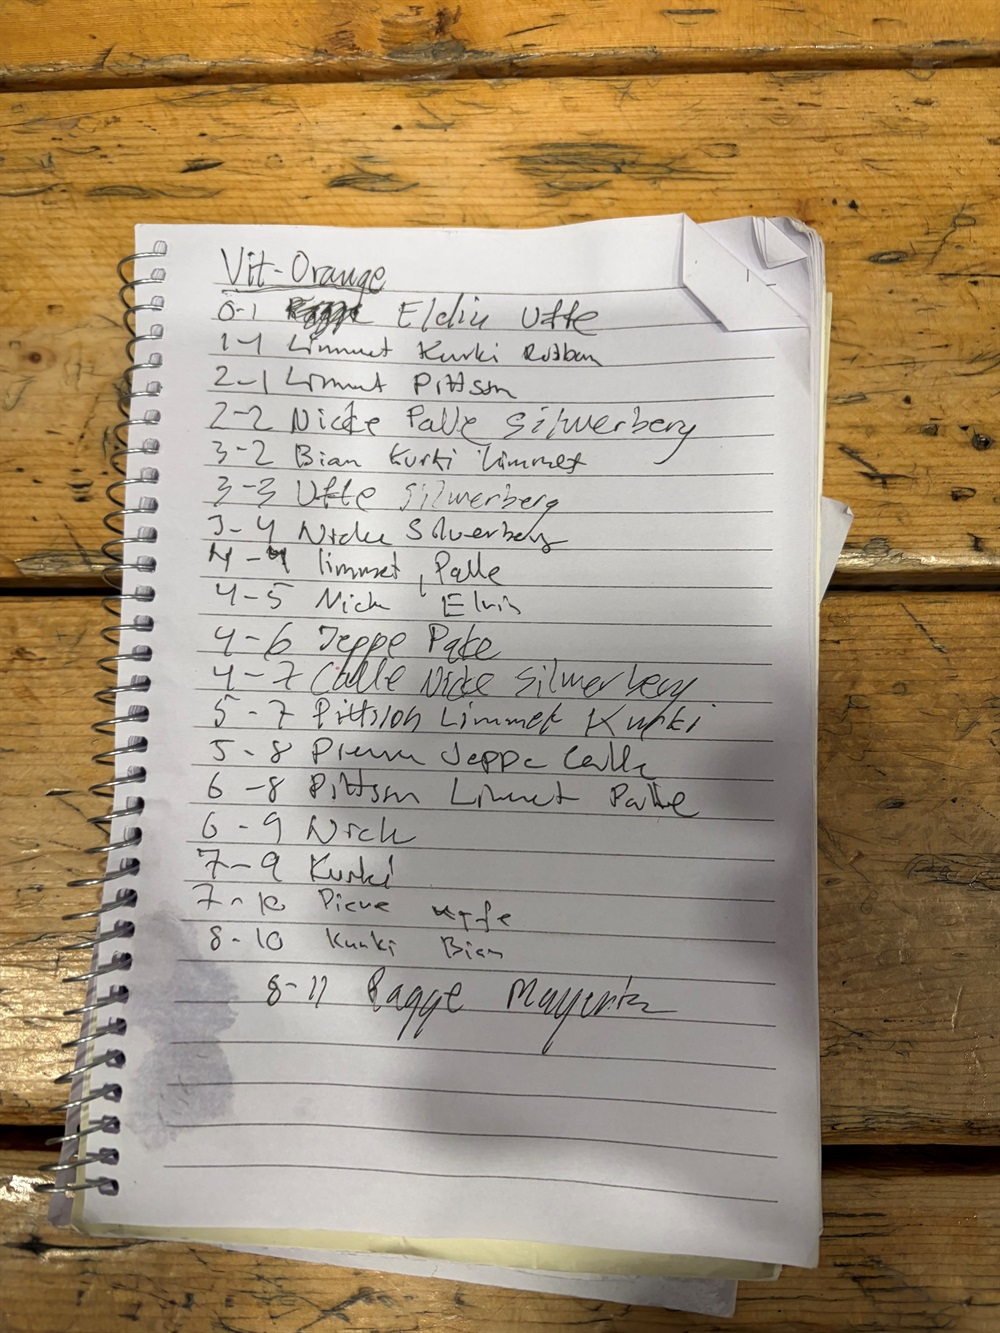 Vit-Orange
0-1 Eldin Uffe
1-1 Limmet Kurki Robban
2-1 Limmet Pittson
2-2 Nicke Palle Silwerberg
3-2 Bian Kurki Limmet
3-3 Uffe Silwerberg
3-4 Nicke Silverberg
4-4 limmet, Palle
4-5 Nick Elvis
4-6 Jeppe
4-7 Calle Nicke Silwerberg
5-7 Pittson Limmet Kurki
5-8 Jeppe Calle
6-8 Pittson Limmet Palle
6-9 Nick
7-9 Kurki
7-10
8-10 Kurki Bian
8-11 Ragge